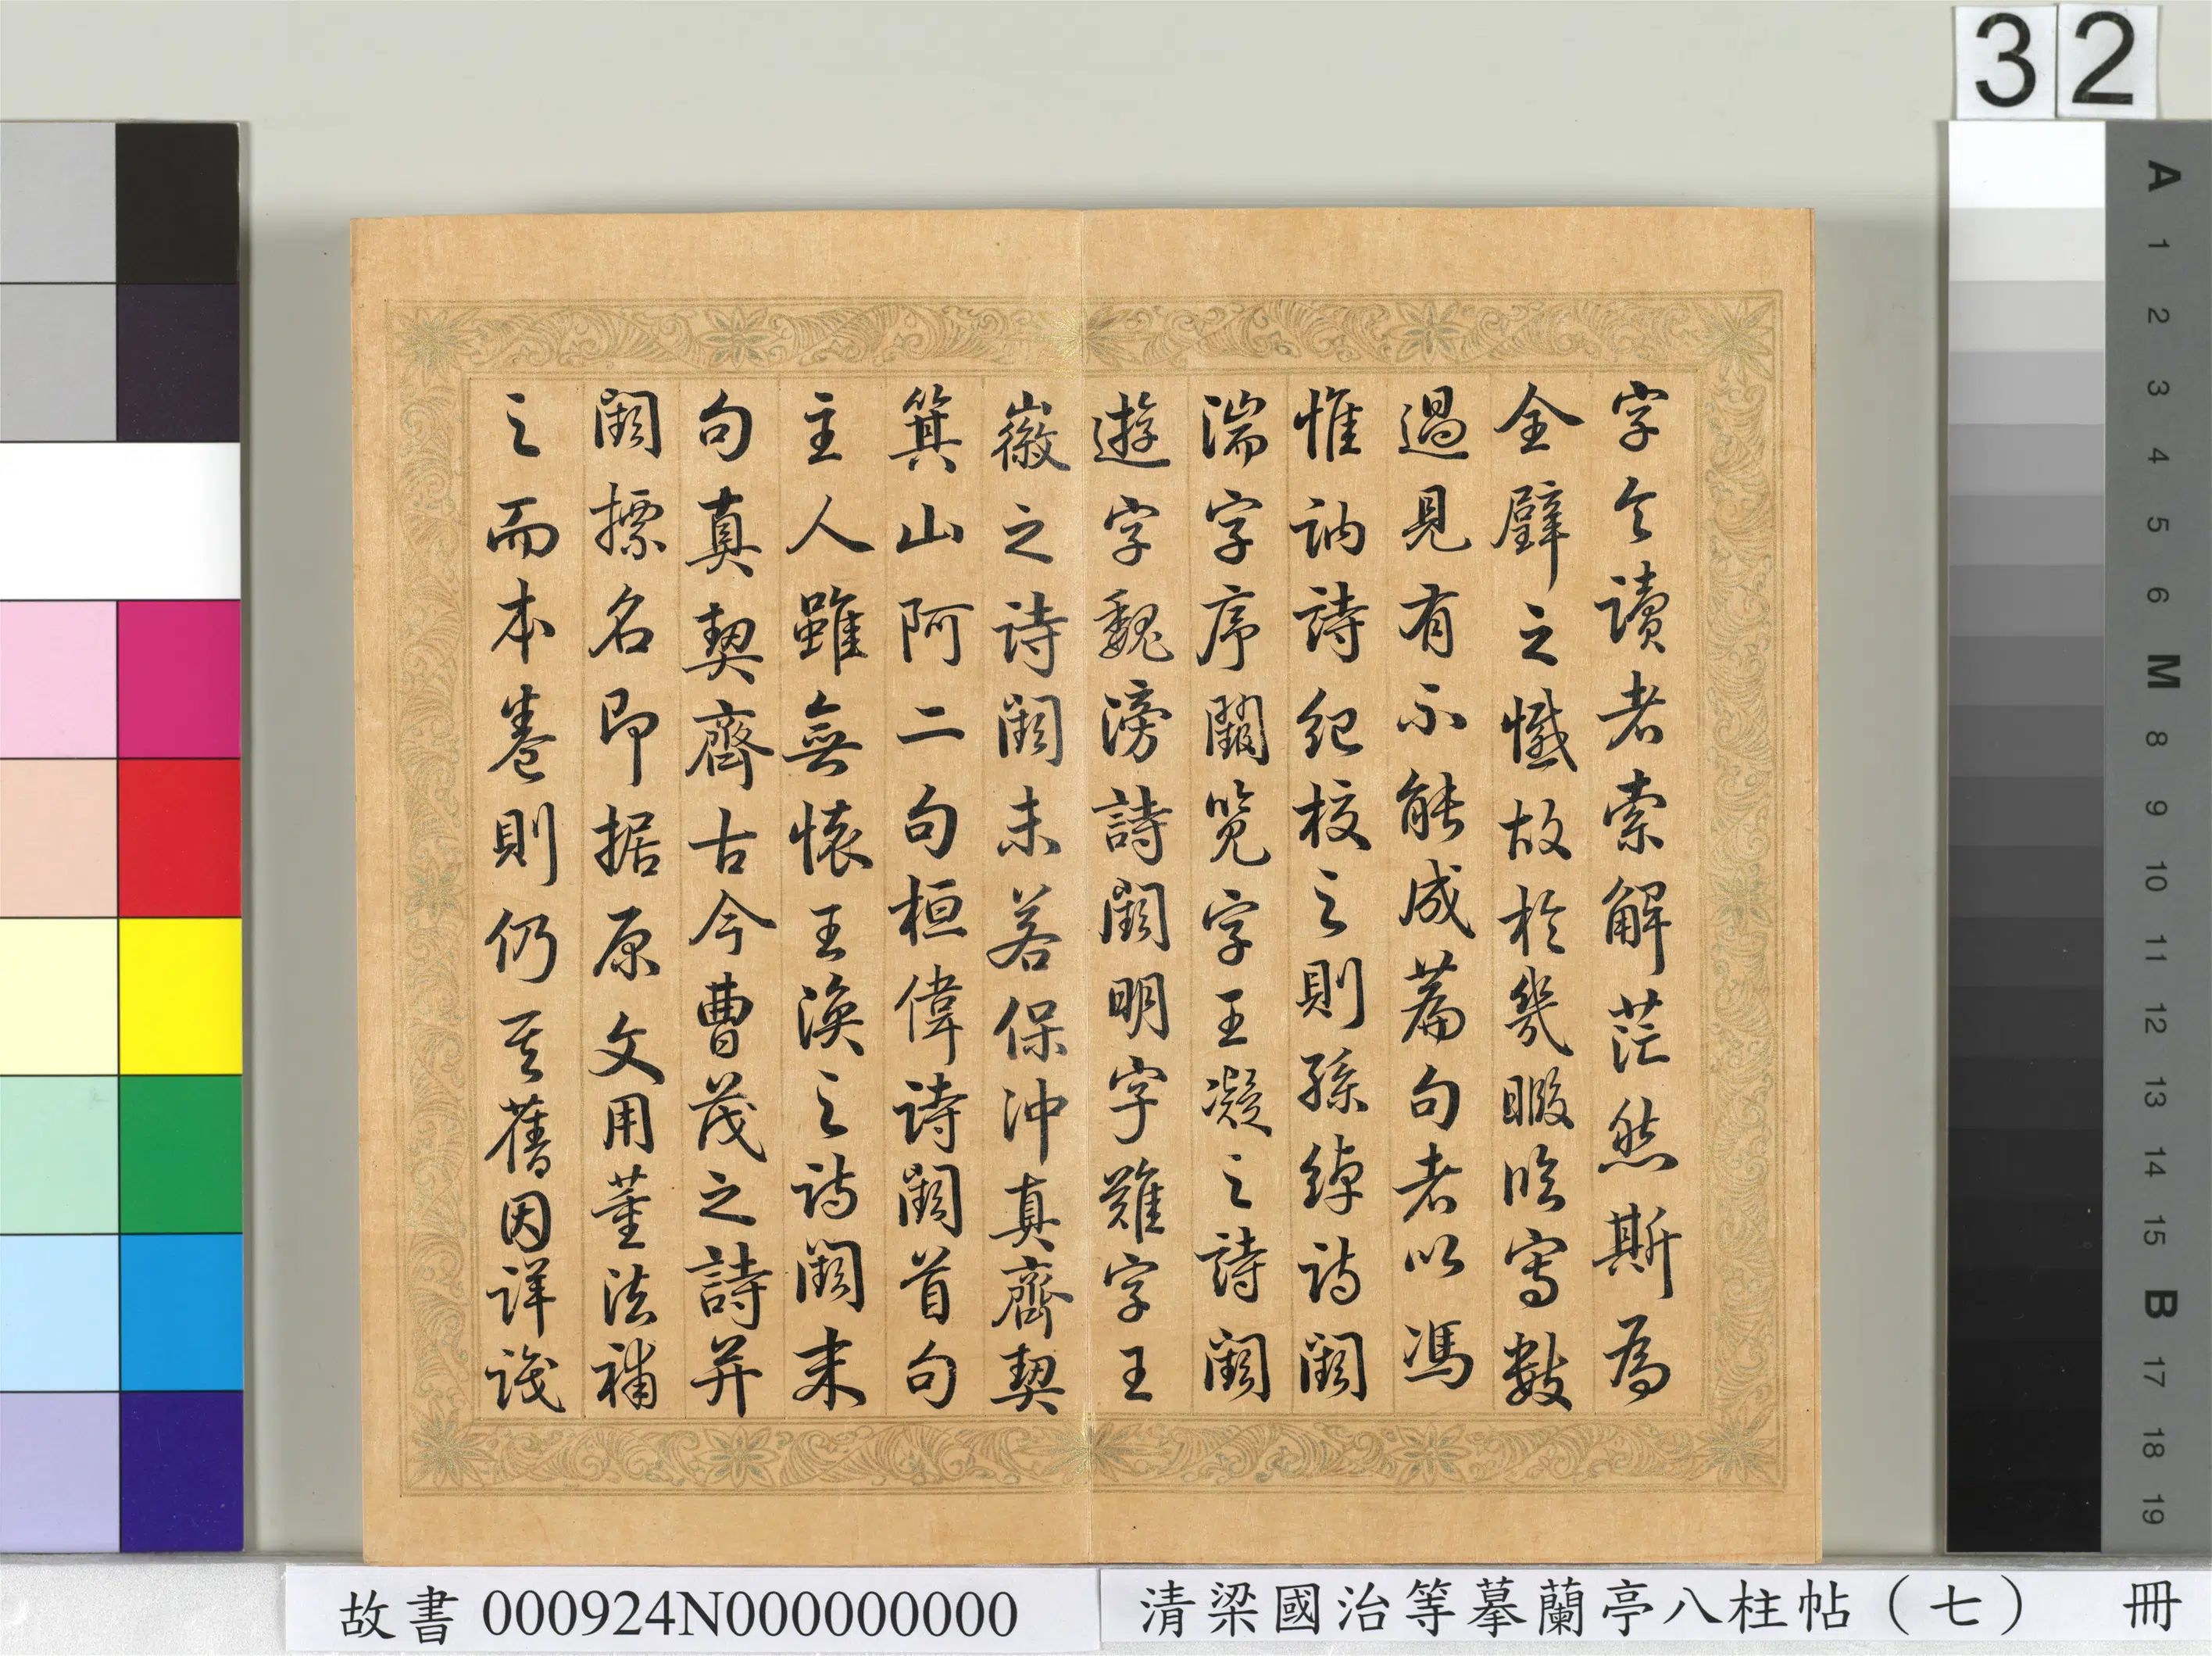 32
字令讀者索解茫然斯為
全璧之憾故於幾暇臨寫數
過見有不能成篇句者以馮
惟訥詩紀校之則孫綽詩闕
湍字序闕覽字王凝之詩闕
遊字魏滂詩闕明字難字王
徽之詩闕未若保沖真齊契
箕山阿二句桓偉詩闕首句
主人雖無懷王渙之詩闕末
句真契齊古今曹茂之詩并
闕摽名即据原文用董法補
之而本卷則仍其舊因詳識
A 1 2 3 4 5 6 M 8 9 10 11 12 13 14 15 B 17 18 19
故書 000924N000000000
清梁國治等摹蘭亭八柱帖（七） 冊